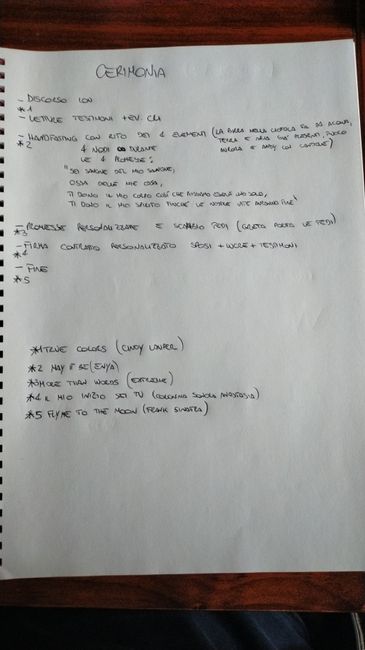 CERIMONIA
- DISCORSO ION
*1
- LETTURE TESTIMONI + EV. CRI
- HANDFASTING CON RITO DEI 4 ELEMENTI (LA BIRRA NELLA CIOTOLA FA DA ACQUA,
*2 TERRA E ARIA GIA' PRESENTI, FUOCO
4 NODI DURANTE AURORA E ANDY CON CANDELE)
LE 4 PROMESSE:
"SEI SANGUE DEL MIO SANGUE,
OSSA DELLE MIE OSSA,
TI DONO IL MIO CORPO COSÌ CHE POSSIAMO ESSERE UNO SOLO,
TI DONO IL MIO SPIRITO FINCHE' LE NOSTRE VITE AVRANNO FINE"
- PROMESSE PERSONALIZZATE E SCAMBIO FEDI (GRETA PORTA LE FEDI)
*3
- FIRMA CONTRATTO PERSONALIZZATO SPOSI + + TESTIMONI
*4
- FINE
*5
*1 TRUE COLORS (CINDY LAUPER)
*2 MAY IT BE (ENYA)
*3 MORE THAN WORDS (EXTREME)
*4 IL MIO INIZIO SEI TU (COLONNA SONORA ANASTASIA)
*5 FLY ME TO THE MOON (FRANK SINATRA)